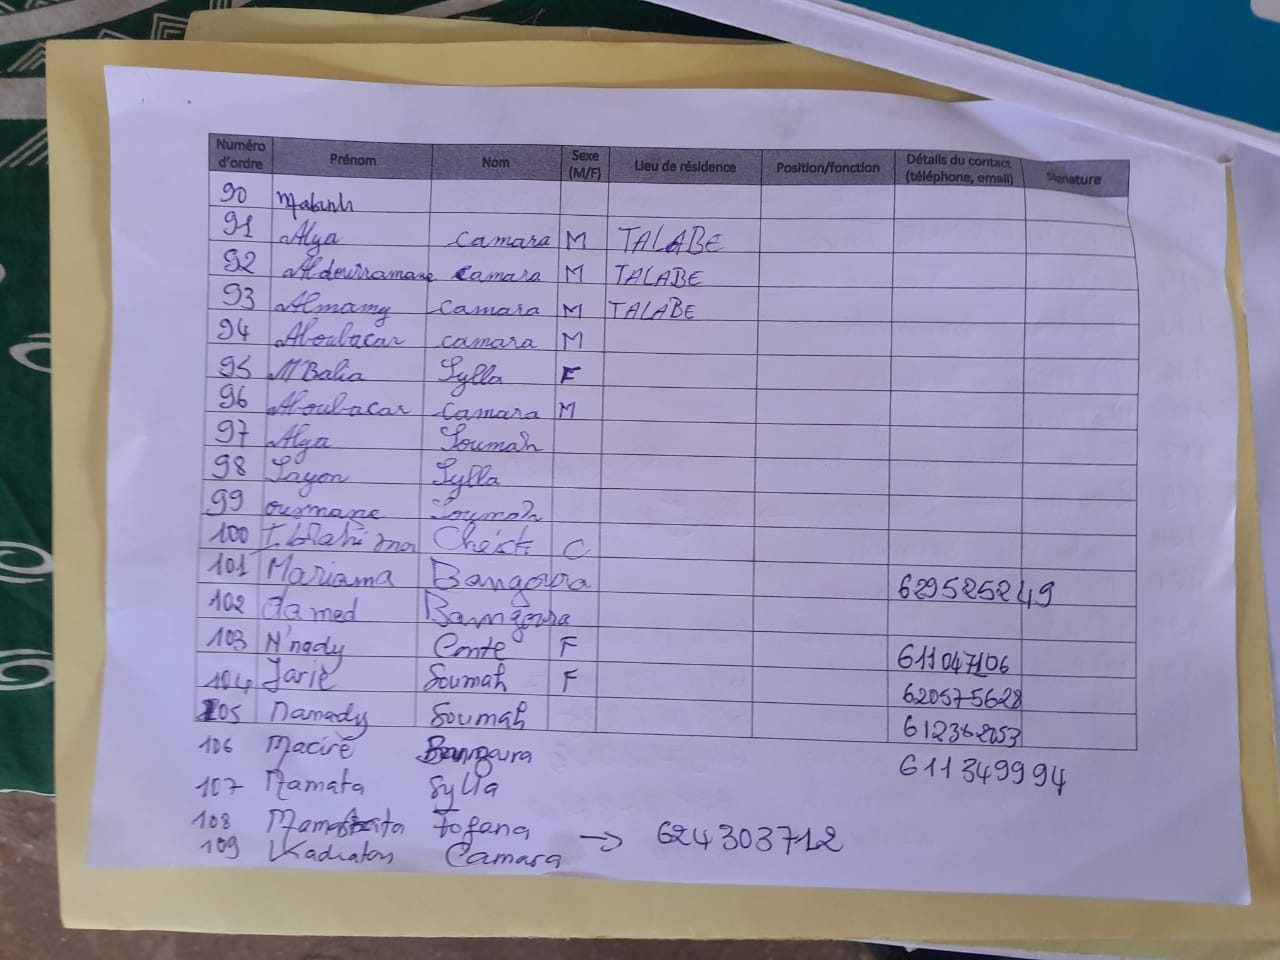 Numéro d'ordre Prénom Nom Sexe (M/F) Lieu de résidence Position/fonction Détails du contact (téléphone, email) Signature
90
91 Alya camara M TALABE
92 camara M TALABE
93 Almamy camara M TALABE
94 Aboubacar camara M
95 M'Balia Sylla F
96 Aboubacar camara M
97 Alya Soumah
98 Sayon Sylla
99 ousmane Soumah
100 Ibrahima C
101 Mariama Bangoura 629525249
102 Bangoura
103 N'nady Conte F 611047106
104 Soumah F 620575628
105 Soumah
106 Maciré Bangoura 611349994
107 Mamata Sylla
108 Fofana → 624303712
109 Kadiatou Camara